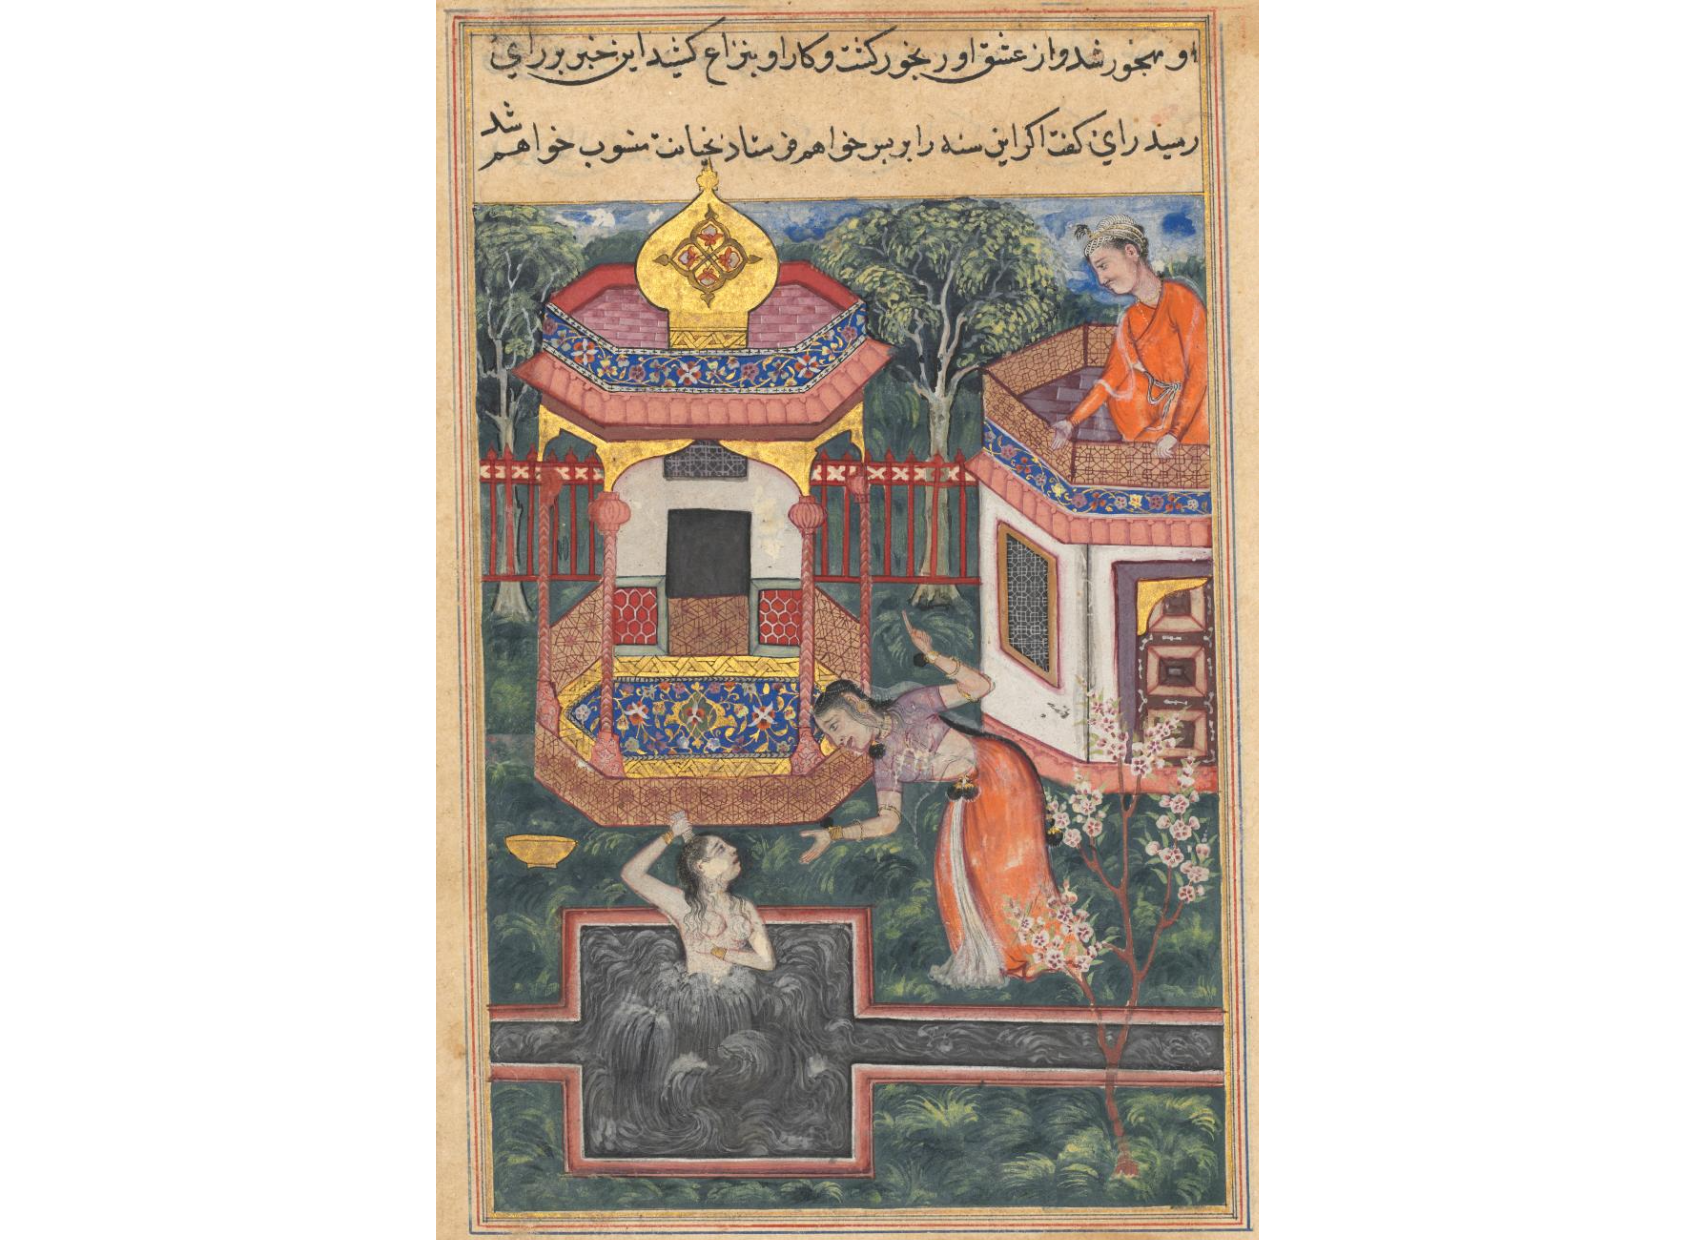 او مهجور شد و از عشق او رنجور کشت و کار او بنزاع کشید این خبر بر رای
رسید رای کفت اکر این سنه را بر بسر خواهم فرستاد بخیانت منسوب خواهم شد